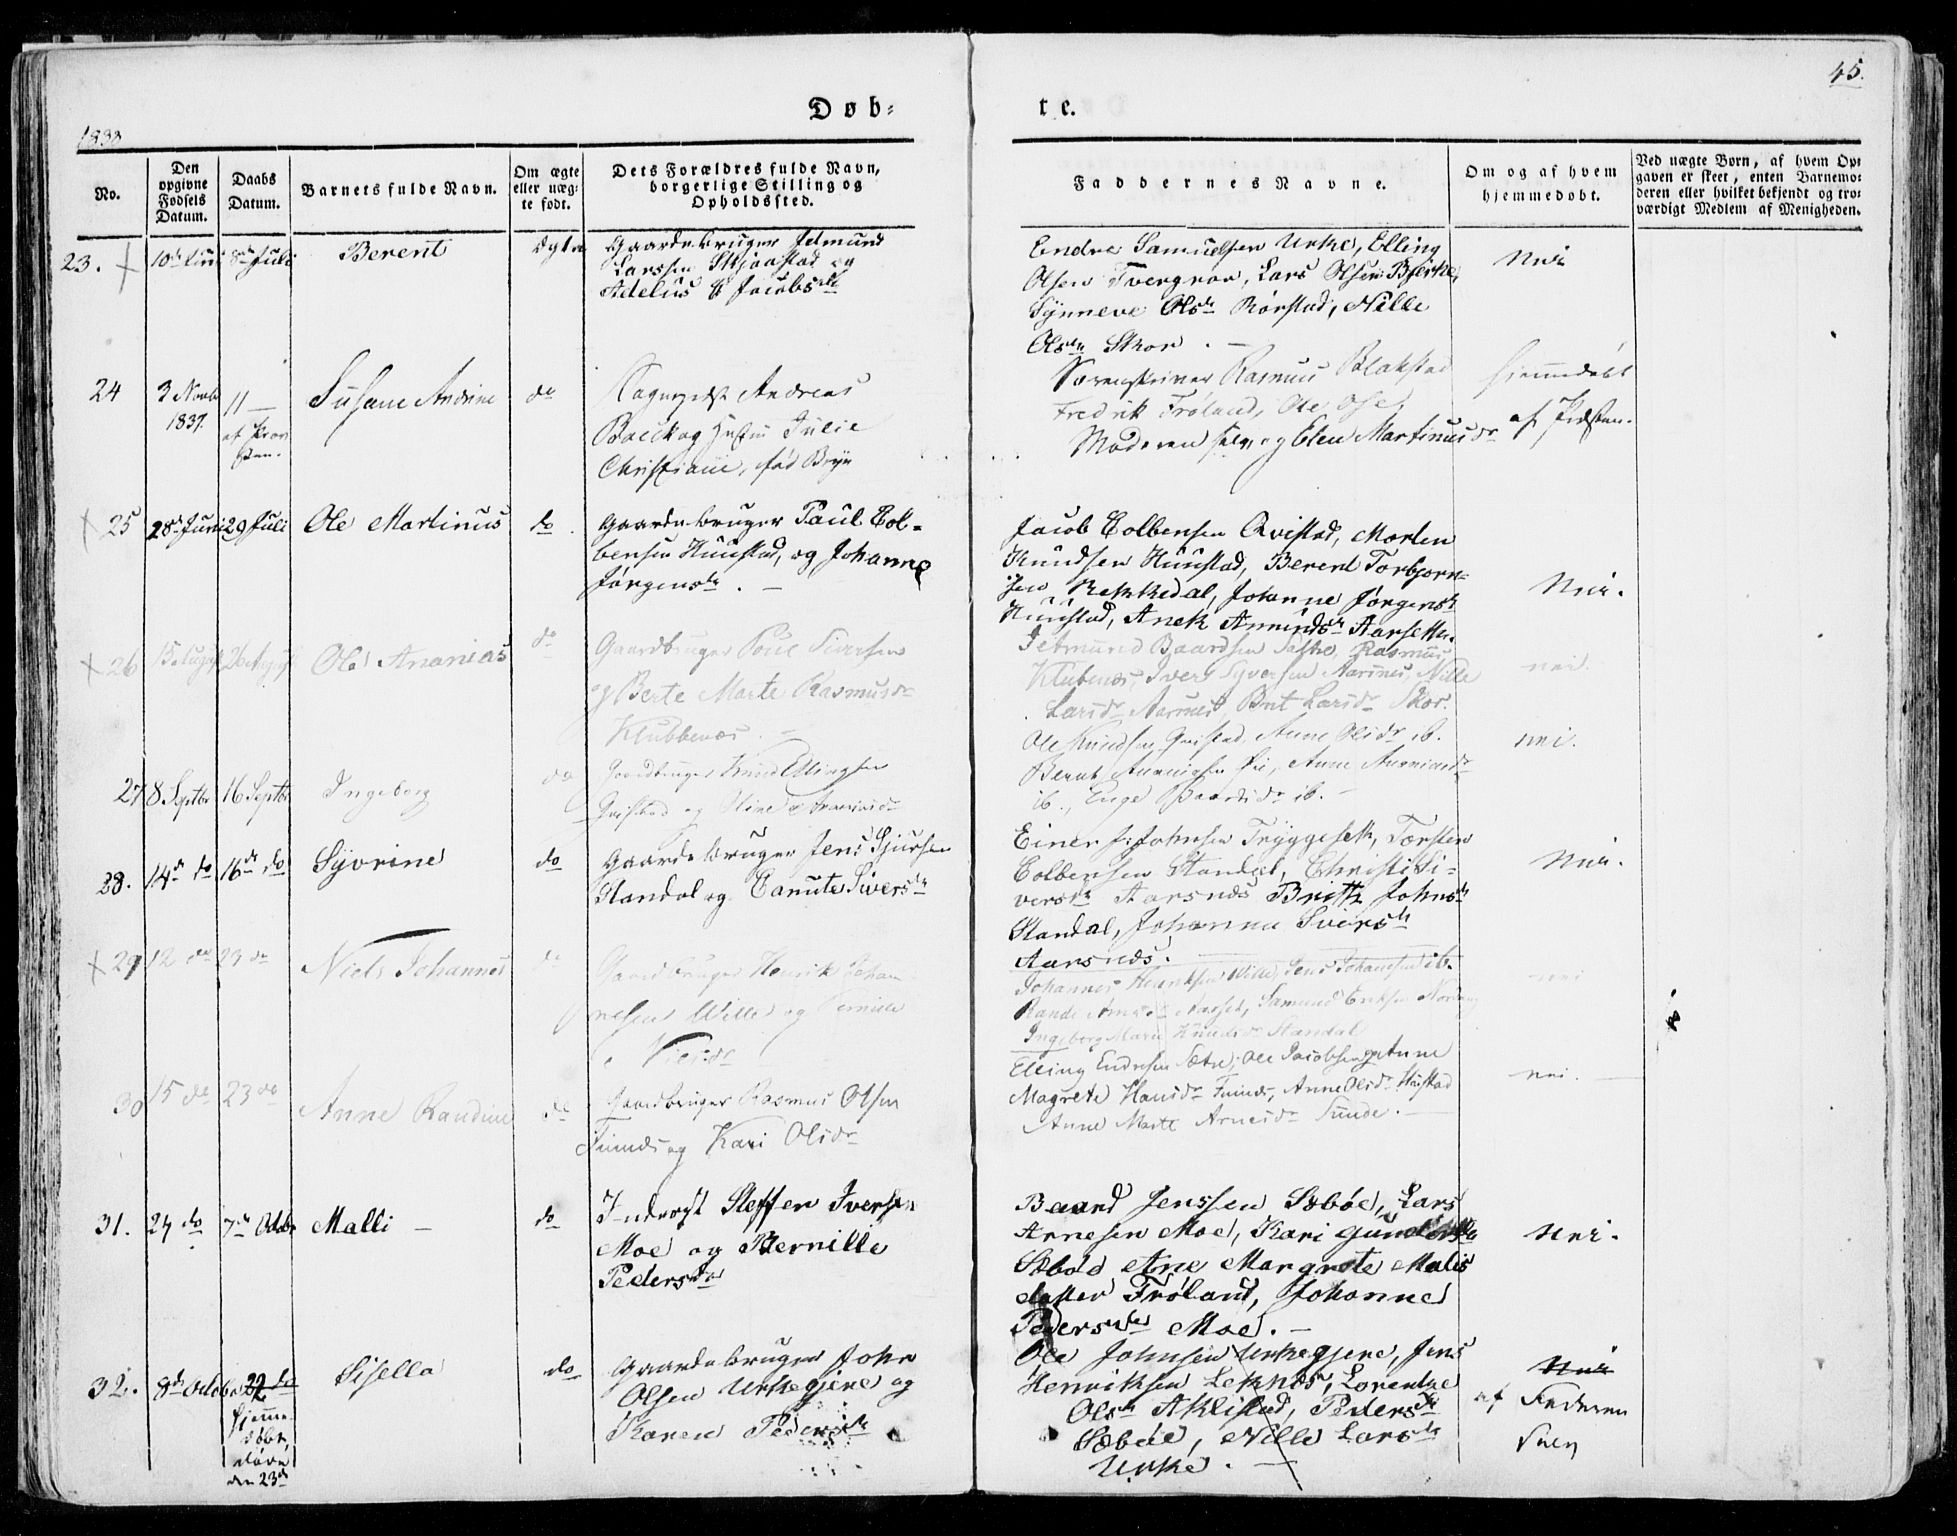 45.
Døb-
te.
1838
No.
Den opgivne Fødsels Datum.
Daabs Datum.
Barnets fulde Navn.
Om ægte eller uægte født.
Dets Forældres fulde Navn, borgerlige Stilling og Opholdssted.
Faddernes Navne.
Om og af hvem hjemmedøbt.
Ved uægte Børn, af hvem Opgaven er skeet, enten Barnemoderen eller hvilket bekjendt og troværdigt Medlem af Menigheden.
23. 10de Juni 8de Juli Berent Ægte
Gaardebruger Jetmund
Larssen Skjaastad og
Adelus Jacobsdr
Endre Samuelsen Urke, Elling
Olsen Tvergrov, Lars Olsen Bjerke,
Synneve Olsdr Rørstad, Nille
Olsdr Skor.
Nei
24 3 Novb 1837. 11 — af Provsten. Susane Andrine do
Andreas
Boeck og Hustru Julie
Christiane, fød Bryn
Sorenskriver Rasmus Blakstad
Fredrik Frøland, Ole Ose,
Moderen selv og Elen Martinusdr
Hjemmedøbt
af Præsten.
25 28de Juni 29 Juli Ole Martinus do
Gaardebruger Paul Colbensen
Huustad, og Johanne
Jørgensdr. —
Jacob Colbensen Qvistad, Morten
Knudsen Huustad, Berent Torbjørnsen
Rekkedal, Johanne Jørgensdr
Huustad, Anek Amundsdr Aarsetter.
Nei.
26 15 August 26 August Ole Ananias do
Gaardbruger Poul Siversen
og Berte Marte Rasmusdr
Klubbenæs. —
Jetmund Baardsen Sætre, Rasmus
Klubenæs, Iver Syversen Aarsnes, Nille
Larsdr Aarsnes, Brit Larsdr Skor.
nei.
27 8 Septbr 16 Septbr Ingeborg do
Gaardbruger Knud Ellingsen
Qvistad og Stine
Ole Knudsen Qvistad, Anne Olsdr ib.
Anne
ib., Inge Baardsdr ib. —
nei.
28. 14de do 16de do Syvrine do
Gaardebruger Jens Gjursen
Standal og Canute Siversdr
Einer Johnsen Tryggeset, Torsten
Colbensen Standal, Christi Siversdr
Aarsnes Britte Johnsdr
Standal, Johanna Sversdr
Aarsnes. —
Nei.
29 12 do 23 do Niels Johannes do
Gaardbruger Henrik Johannesen
Wille og Pernille
Nielsdr
Johannes Henriksen Wille, Jens Johannesen ib.
Rande Arnsdr Aasset, Samund Eriksen Nordang
Ingeborg Marie Knudsdr Standal
nei
30 15 do 23 do Anne Randine do
Gaardbruger Rasmus Olsen
Finnes og Kari Olsdr
Elling Endresen Sætre, Ole Jacobsen Anne
Magrete Hansdr Finnes, Anne Olsdr Hustad
Anne Marte Arnesdr Sunde. —
nei. —
31. 24 do 7de Octbr Malli — do
Inderogt Steffen Iversen
Moe og Pernille
Pedersdr
Baard Jenssen Sæbøe, Lars
Arnesen Moe, Kari Gundersdr
Sæbøe Ane Margrete Malis
datter Frøland, Johanne
Pedersdr Moe. —
Nei.
32. 8de Octbr 22 do Hjemmedøbt, døde den 23de Sisella do
Gaardebruger John
Olsen Urkegjere og
Karen Pedersdr
Ole Johnsen Urkegjere, Jens
Henriksen Leknæs, Lorentze
Olsdr Aklestad, Pedersdr
Sæbøe, Nille Larsdr
Urke. —
Nei
af Faderen